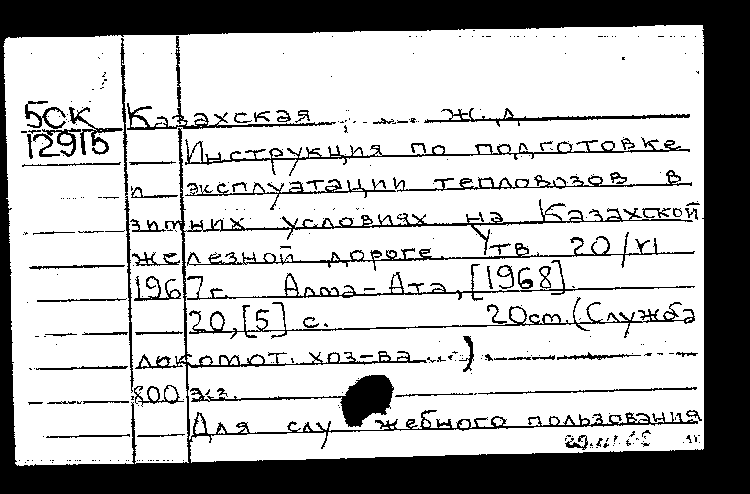 БОК Казахская ж. д.
12915 Инструкция по подготовке
и эксплуатации тепловозов в
зимних условиях на Казахской
железной дороге. Утв. 20/VI
1967г. Алма-Ата, [1968].
20, [5] с. 20см. (Служба
локомот. хоз-ва ...)
800 экз.
Для служебного пользования